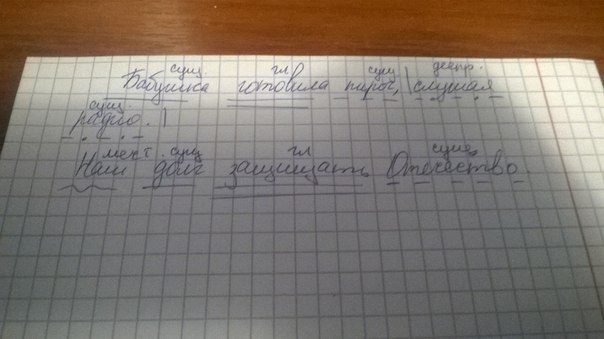 сущ. гл. сущ деепр.
Бабушка готовила пирог, слушая
сущ.
радио.
мест. сущ гл сущ
Наш долг защищать Отечество.